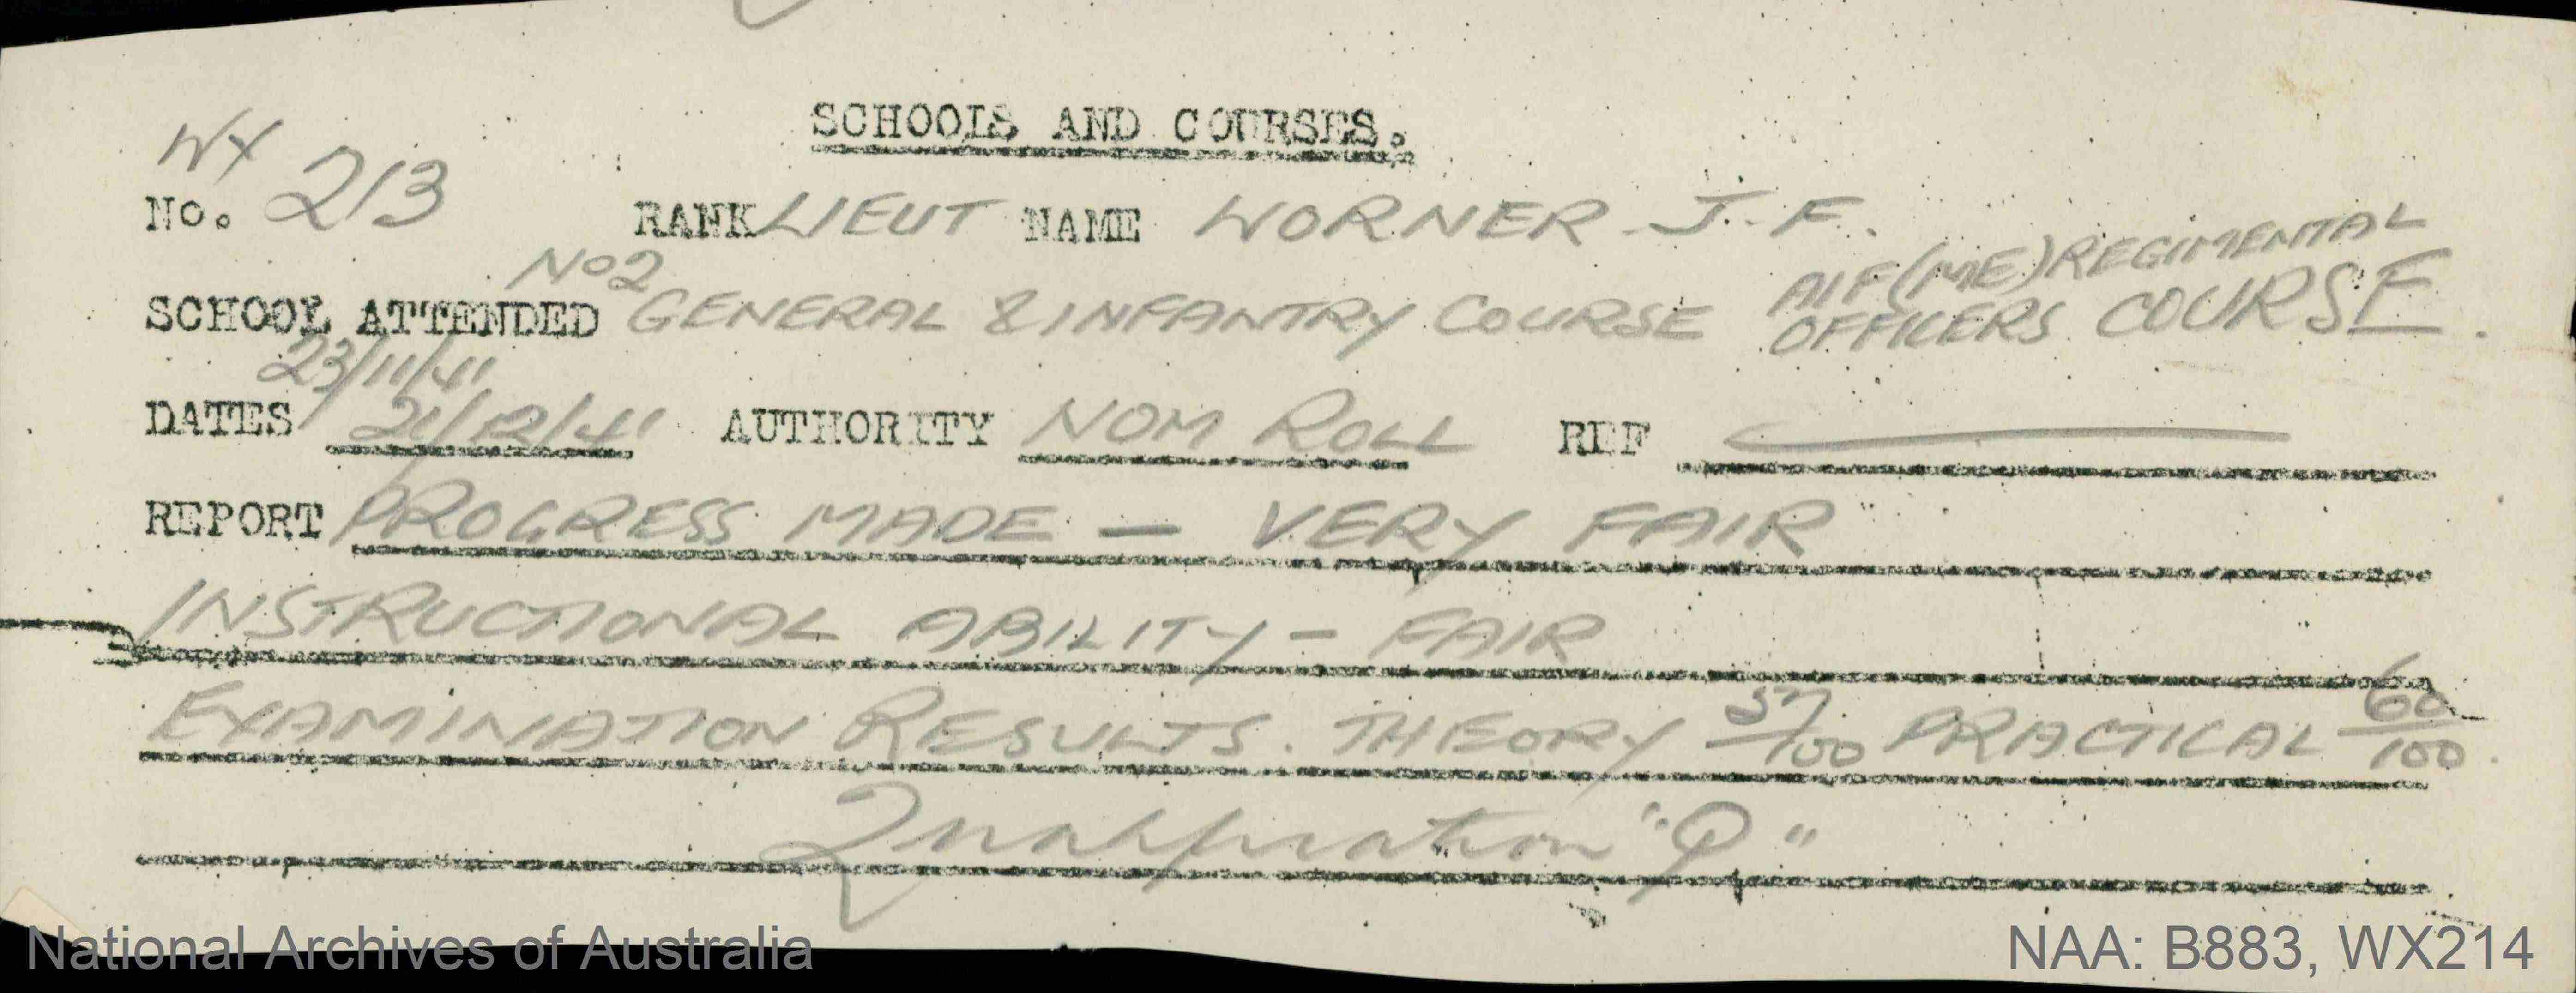 SCHOOLS AND COURSES.
WX
No. 213 RANK LIEUT NAME WORNER J. F.
No2 AIF (ME) REGIMENTAL
SCHOOL ATTENDED GENERAL & INFANTRY COURSE OFFICERS COURSE.
23/11/41
DATES 21/12/41 AUTHORITY NOM ROLL REF
REPORT PROGRESS MADE — VERY FAIR
INSTRUCTIONAL ABILITY - FAIR
EXAMINATION RESULTS. THEORY 57/100 PRACTICAL 60/100.
Qualification "Q"
National Archives of Australia NAA: B883, WX214